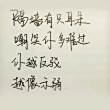 隔墙有只耳朵
嘲笑你多难过
你越反驳
越像示弱